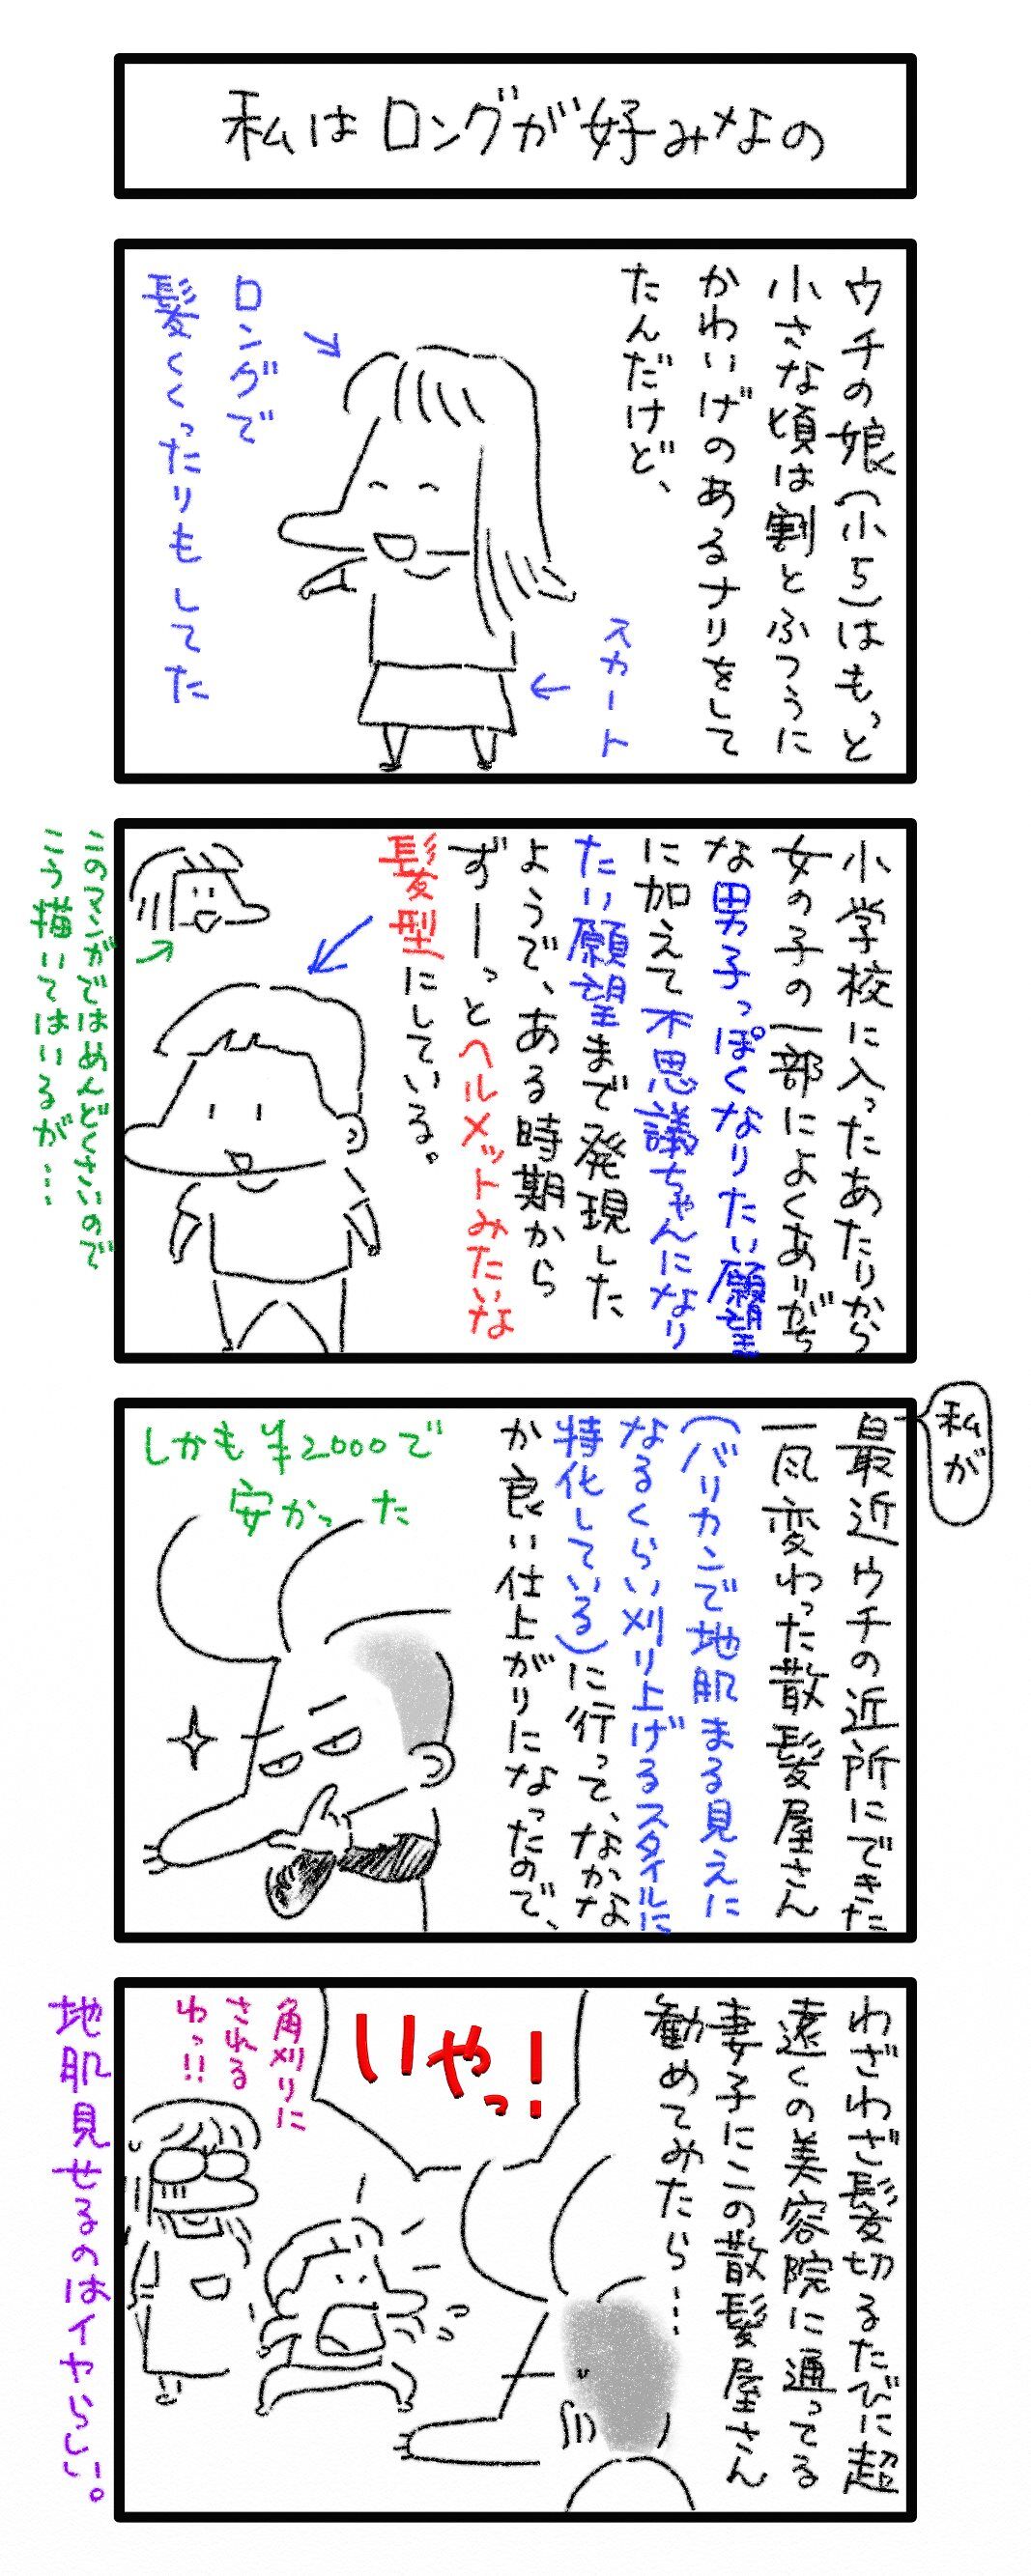 私はロングが好みなの
ウチの娘(小5)はもっと
小さな頃は割とふつうに
かわいげのあるナリをして
たんだけど、
スカート
ロングで
髪くくったりもしてた
小学校に入ったあたりから
女の子の一部によくありがち
な男子っぽくなりたい願望
に加えて不思議ちゃんになり
たい願望まで発現した
ようで、ある時期から
ずーっとヘルメットみたいな
髪型にしている。
このマンガではめんどくさいので
こう描いてはいるが…
私が
最近ウチの近所にできた
一風変わった散髪屋さん
(バリカンで地肌まる見えに
なるくらい刈り上げるスタイルに
特化している)に行って、なかな
か良い仕上がりになったので、
しかも¥2000で
安かった
わざわざ髪切るたびに超
遠くの美容院に通ってる
妻子にこの散髪屋さん
勧めてみたら…
いやっ!
角刈りに
される
わっ!!
地肌見せるのはイヤらしい。